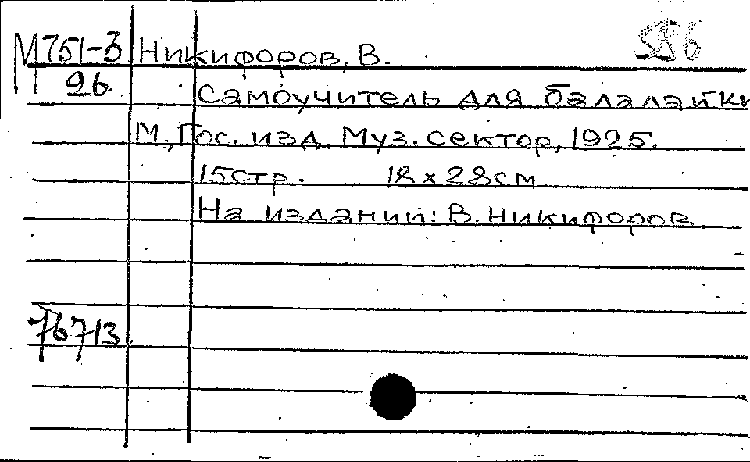 М751-3 Никифоров, В. 556
26 Самоучитель для балалайки
М., Гос. изд. Муз. сектор, 1925.
15стр. 18 х 28см
На издании: В. Никифоров
76713